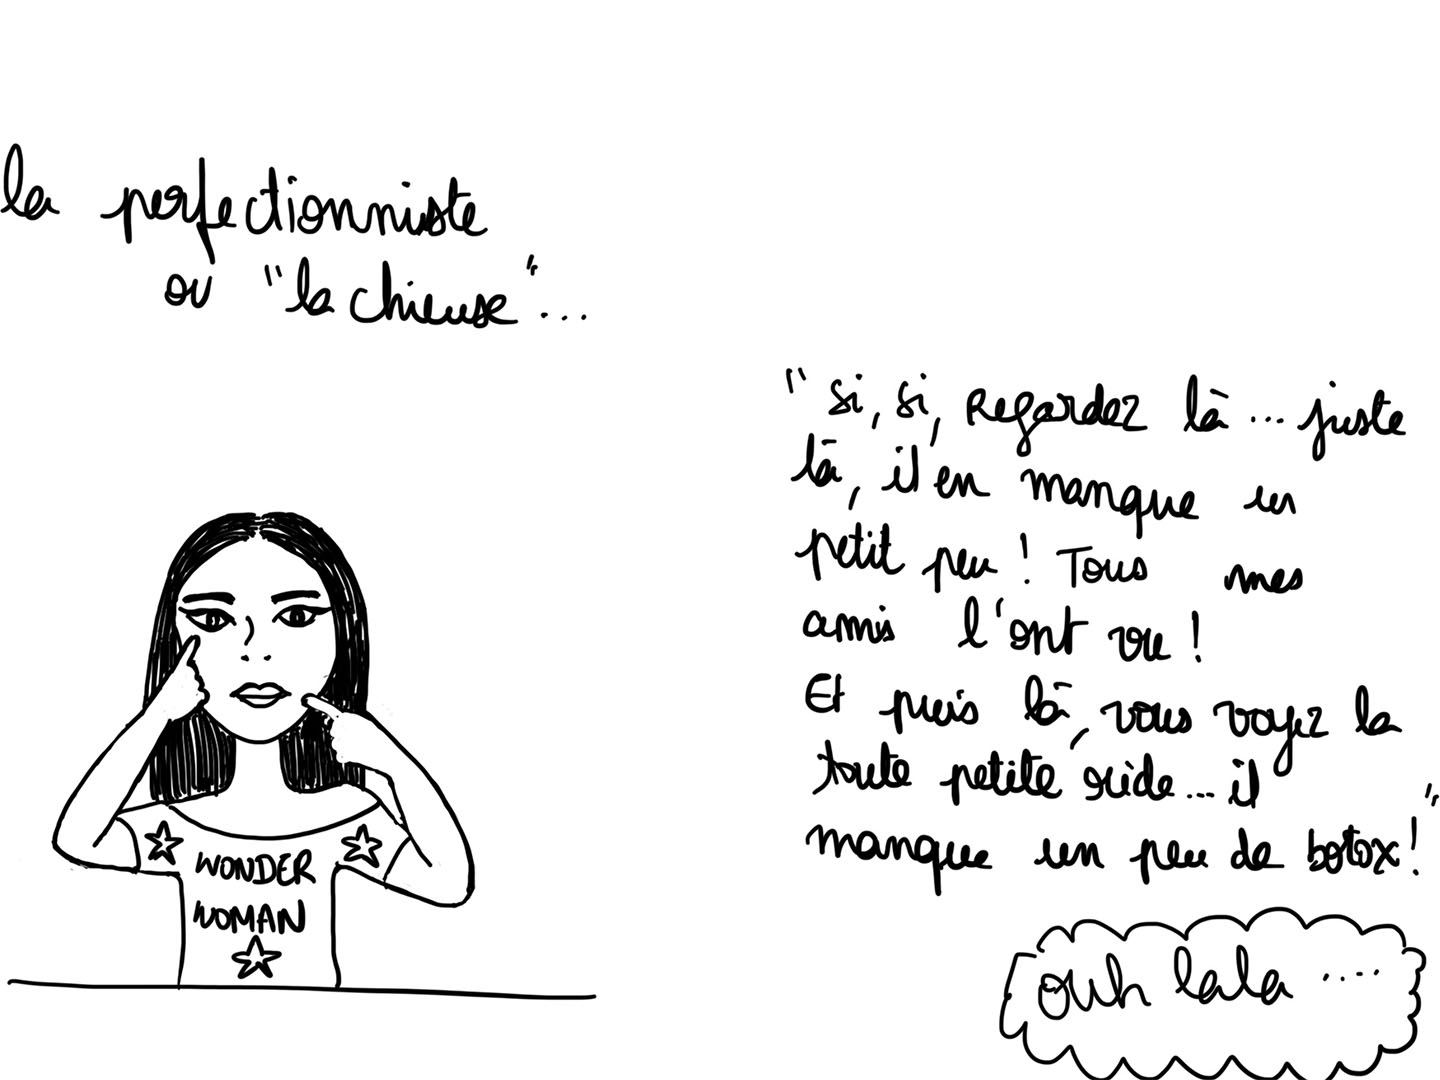 la perfectionniste
ou "la chieuse"...
"si, si, Regardez là ... juste
là, il en manque un
petit peu ! Tous mes
amis l'ont vu !
Et puis là, vous voyez la
toute petite ride... il
manque un peu de botox !"
WONDER
WOMAN
ouh lala ....